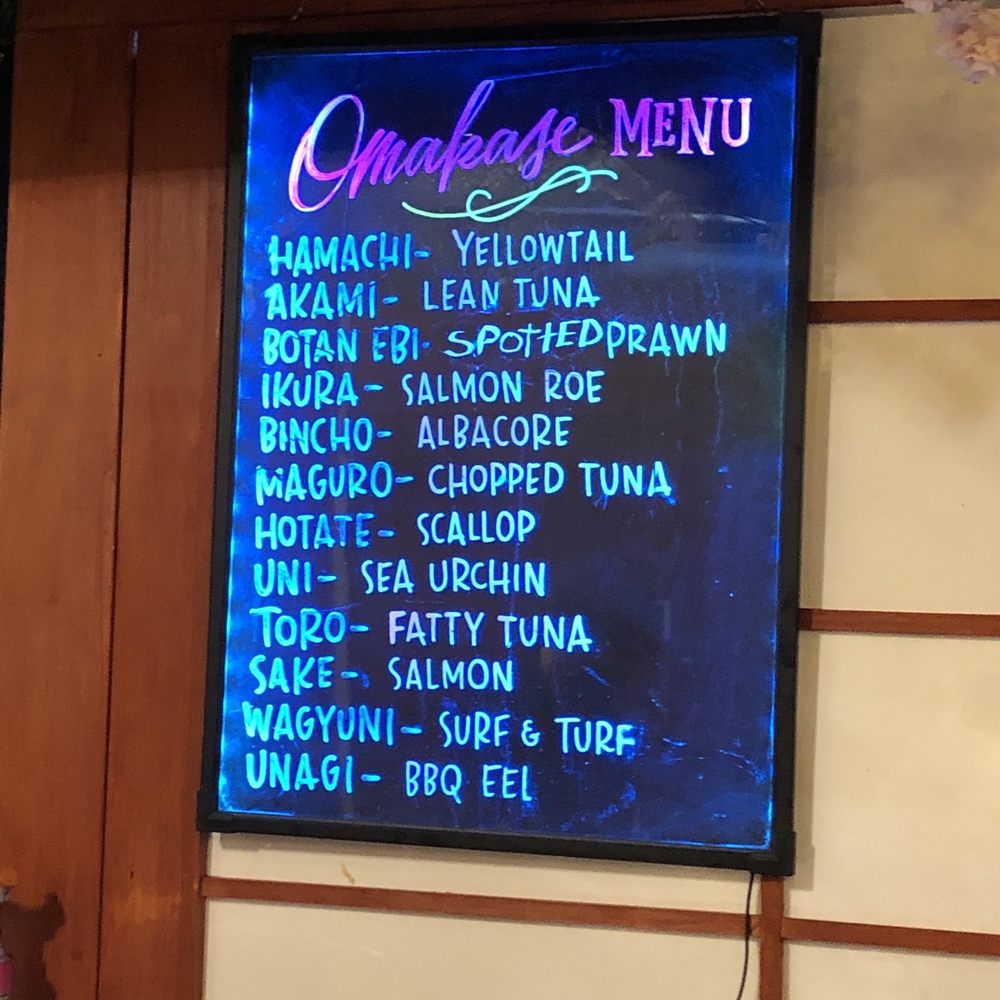 Omakase MENU
HAMACHI- YELLOWTAIL
AKAMI- LEAN TUNA
BOTAN EBI- SPOTTED PRAWN
IKURA- SALMON ROE
BINCHO- ALBACORE
MAGURO- CHOPPED TUNA
HOTATE- SCALLOP
UNI- SEA URCHIN
TORO- FATTY TUNA
SAKE- SALMON
WAGYUNI- SURF & TURF
UNAGI- BBQ EEL